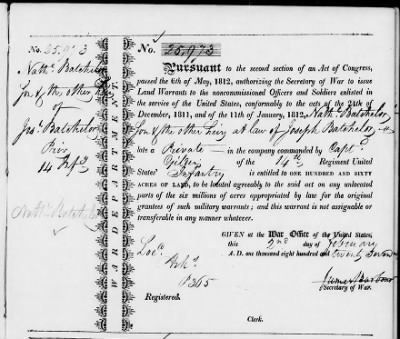 No. 25,973
Nathl. Batchelor
Son & the other heir
of
Jos. Batchelor
Priv.
14 Infy
Nathl. Batchelor
WAR DEPARTMENT.
No. 25,973
Pursuant to the second section of an Act of Congress,
passed the 6th of May, 1812, authorizing the Secretary of War to issue
Land Warrants to the noncommissioned Officers and Soldiers enlisted
in the service of the United States, conformably to the acts of the 24th of
December, 1811, and of the 11th of January, 1812, Nathl. Batchelor
Son & the other heirs at law of Joseph Batchelor
late a Private in the company commanded by Capt
of the 14th Regiment United
States' Infantry is entitled to ONE HUNDRED AND SIXTY
ACRES OF LAND, to be located agreeably to the said act on any unlocated
parts of the six millions of acres appropriated by law for the original
grantees of such military warrants; and this warrant is not assignable or
transferable in any manner whatever.
GIVEN at the War Office of the United States,
this 2nd day of February
A.D. one thousand eight hundred and twenty seven
Loc.
Arks.
365
James Barbour
Secretary of War.
Registered.
Clerk.